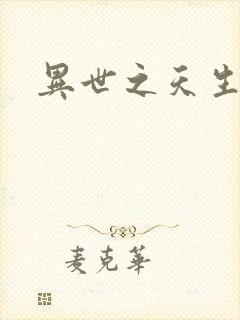 異世之天生
麦克華